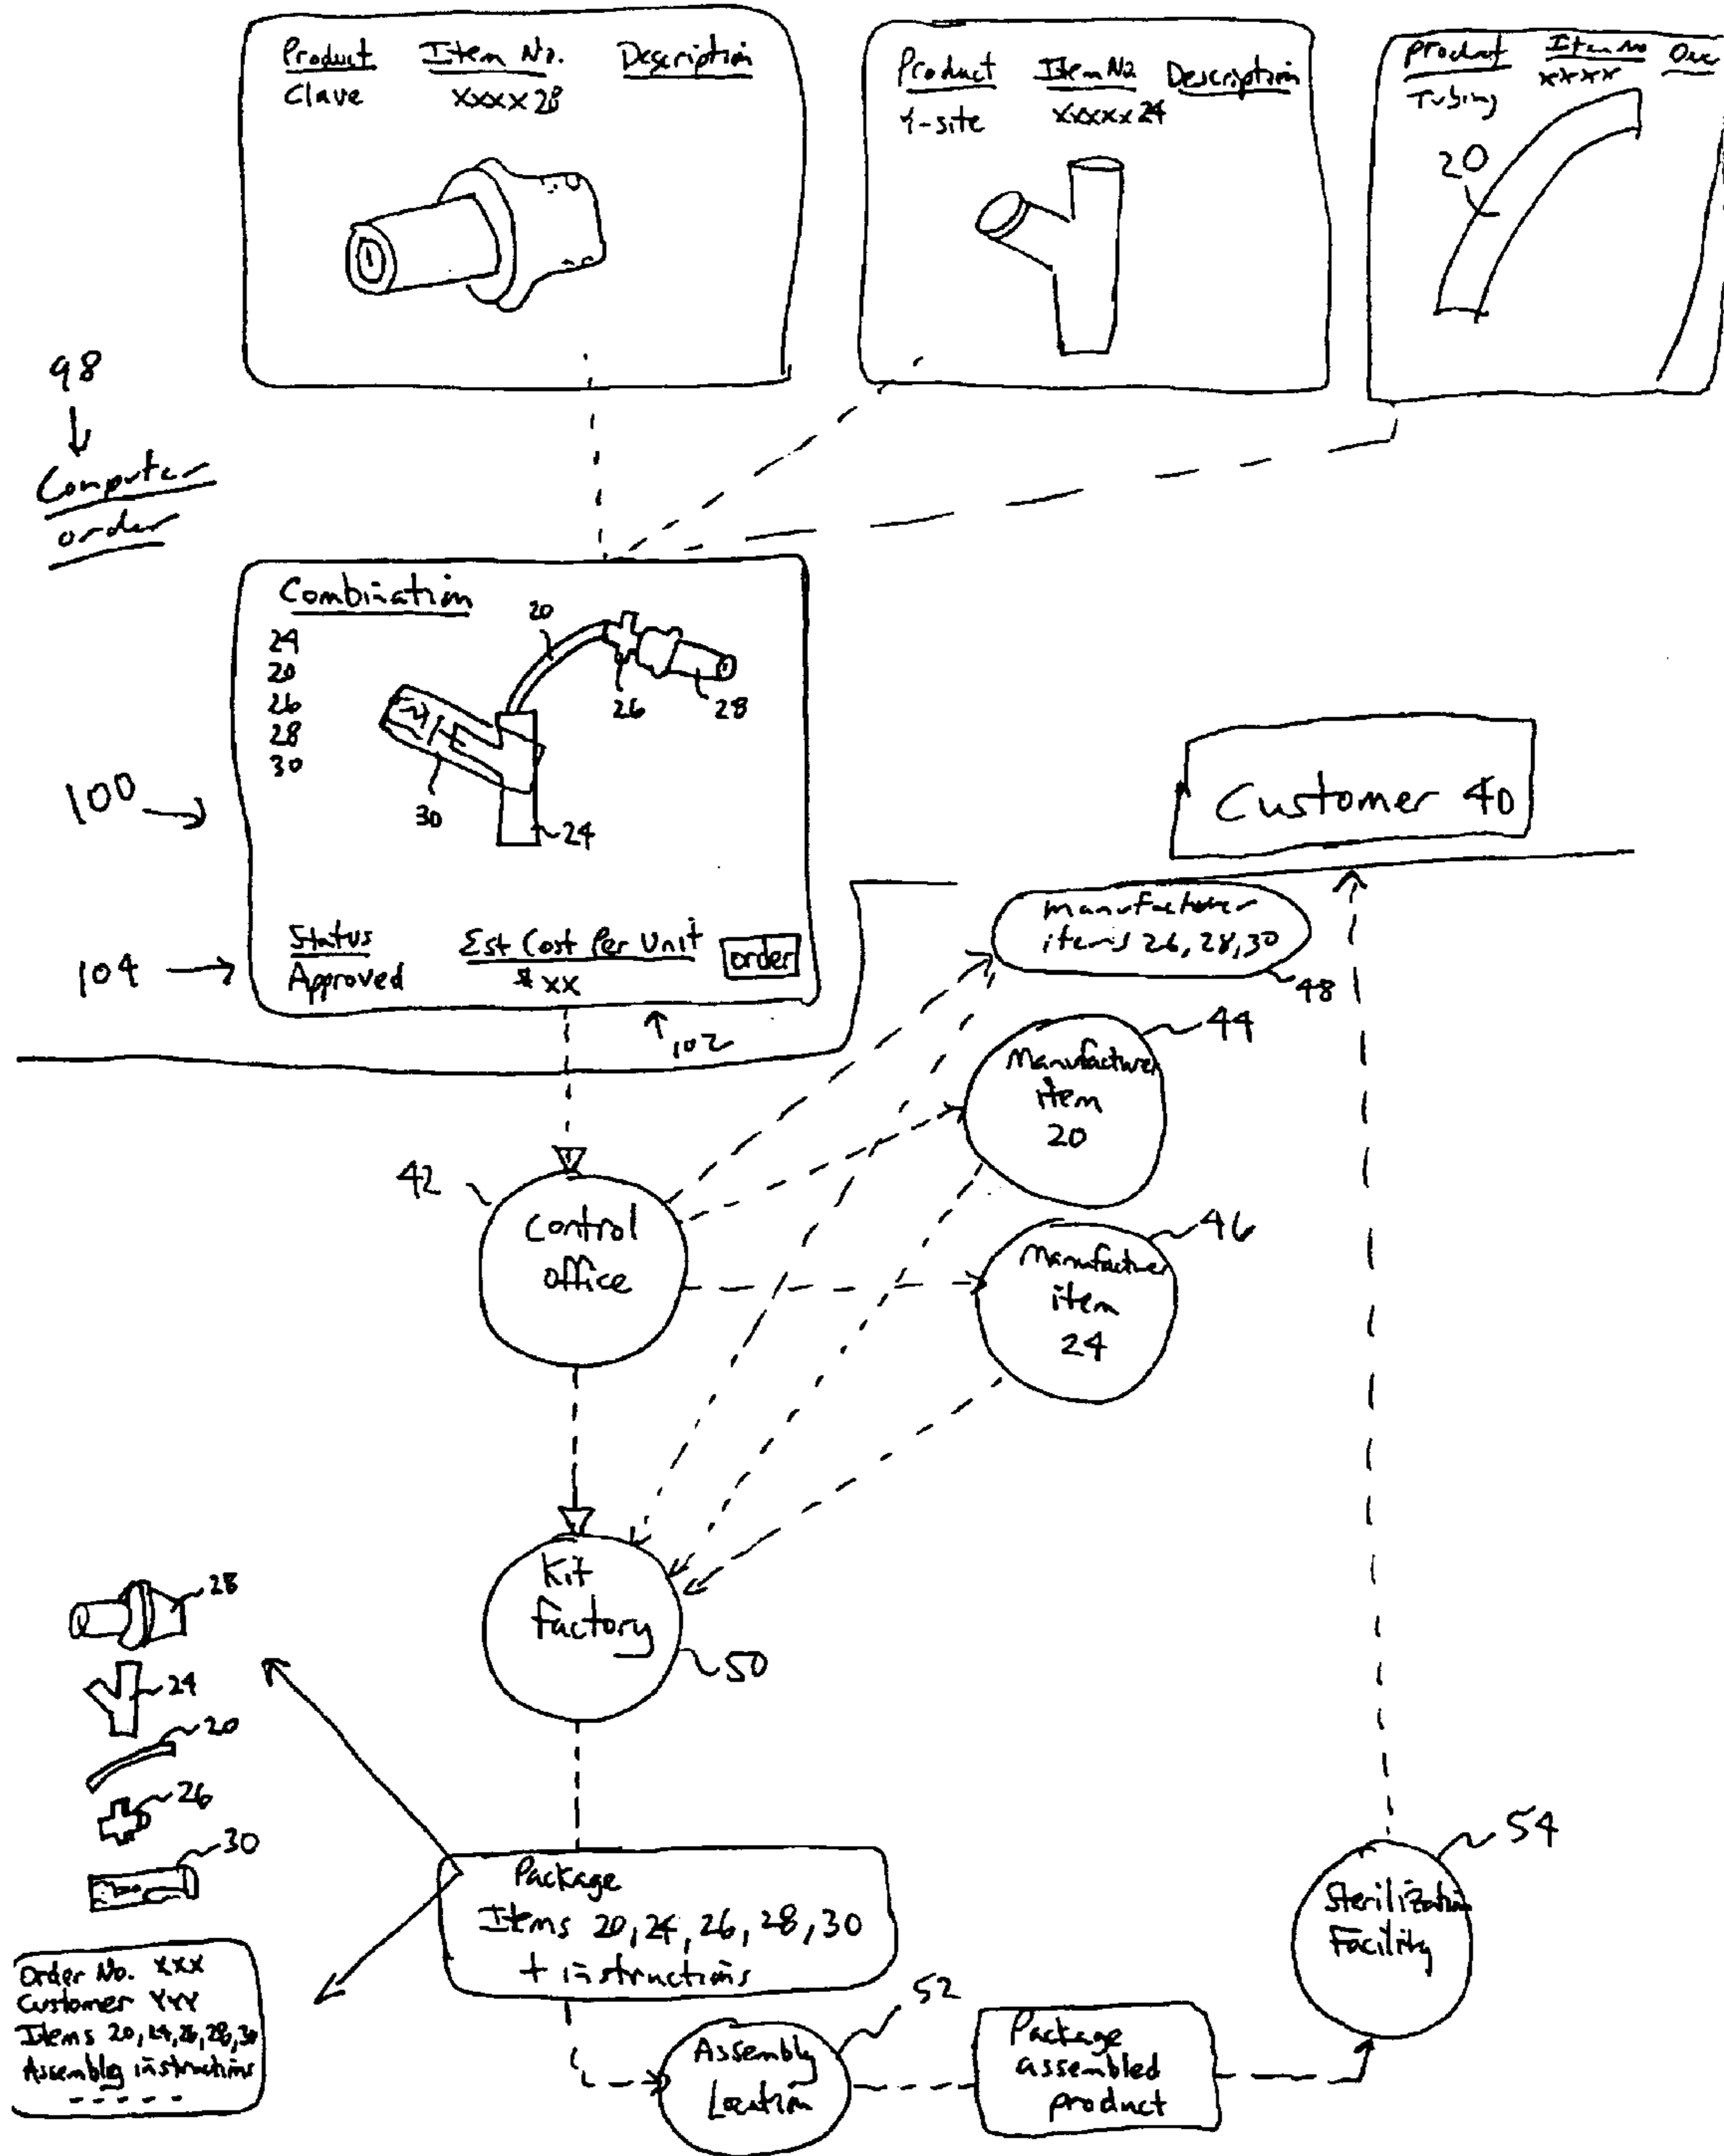 Product Item No. Description
Clave xxxx28
Product Item No. Description
Y-site xxxxx24
Product Item No
Tubing xxxx
20
98
Computer
order
Combination
24
20
26
28
30
20
26
28
30
24
100
104
Status Est Cost Per Unit order
Approved $xx
102
Customer 40
Manufacturer
items 26, 28, 30
48
44
Manufacturer
item
20
46
Manufacturer
item
24
42
Control
office
Kit
Factory
50
28
24
20
26
30
Package
Items 20, 24, 26, 28, 30
+ instructions
Order No. XXX
Customer YYY
Items 20, 24, 26, 28, 30
Assembly instructions
52
Assembly
Location
Package
assembled
product
54
Sterilization
Facility